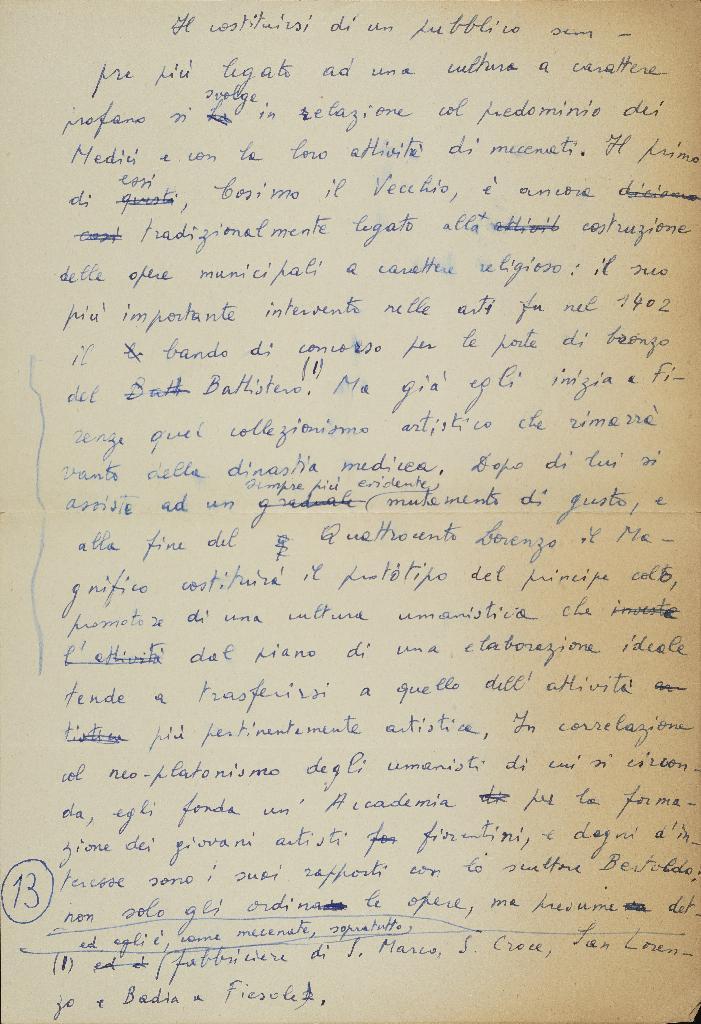 Il costituirsi di un pubblico sem-
pre più legato ad una cultura a carattere
profano si svolge in relazione col predominio dei
Medici e con la loro attività di mecenati. Il primo
di essi questi, Cosimo il Vecchio, è ancora diciamo
così tradizionalmente legato alla attivit costruzione
delle opere municipali a carattere religioso: il suo
più importante intervento nelle arti fu nel 1402
il bando di concorso per le porte di bronzo
del Batt Battistero (1). Ma già egli inizia a Fi-
renze quel collezionismo artistico che rimarrà
vanto della dinastia medicea. Dopo di lui si
assiste ad un graduale sempre più evidente mutamento di gusto, e
alla fine del Quattrocento Lorenzo il Ma-
gnifico costituirà il prototipo del principe colto,
promotore di una cultura umanistica che investe
l'attività dal piano di una elaborazione ideale
tende a trasferirsi a quello dell'attività ar
tistica più pertinentemente artistica. In correlazione
col neo-platonismo degli umanisti di cui si circon-
da, egli fonda un'Accademia per la forma-
zione dei giovani artisti for fiorentini, e degni d'in-
teresse sono i suoi rapporti con lo scultore Bertoldo:
13
non solo gli ordina le opere, ma presume det-
ed egli è, come mecenate, sopratutto,
(1) ed è fabbriciere di S. Marco, S. Croce, San Loren-
zo e Badia a Fiesole.